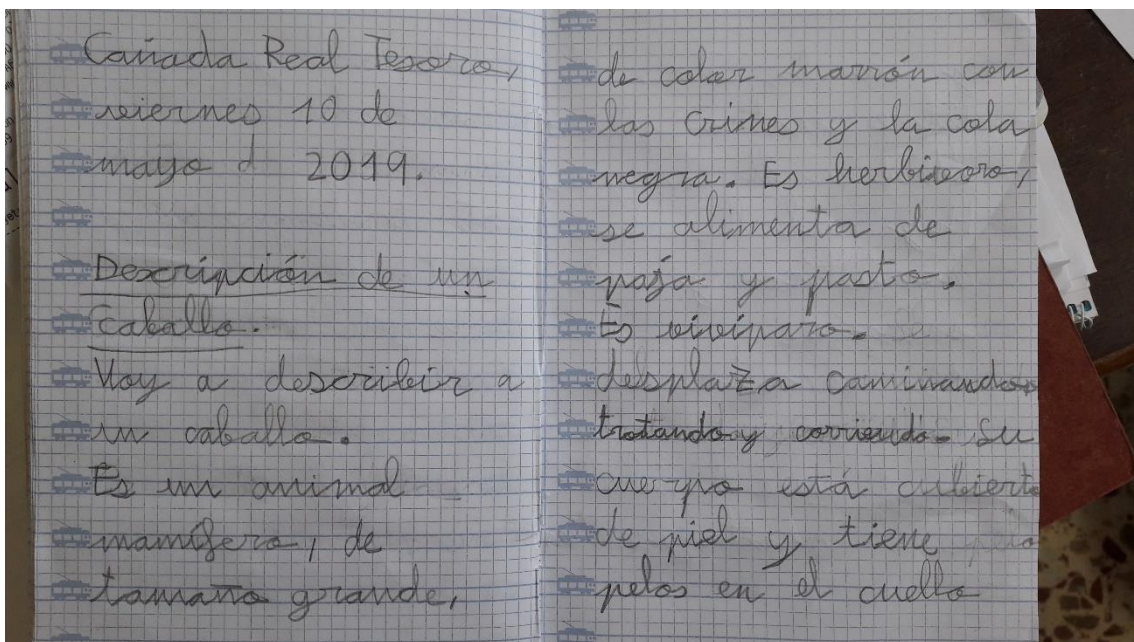 Cañada Real Tesoro,
viernes 10 de
mayo d 2019.
Descripción de un
caballo.
Voy a describir a
un caballo.
Es un animal
mamífero, de
tamaño grande,
de color marrón con
las crines y la cola
negra. Es herbívoro,
se alimenta de
paja y pasto.
Es vivíparo. Se
desplaza caminando
trotando y corriendo. Su
cuerpo está cubierto
de piel y tiene
pelos en el cuello